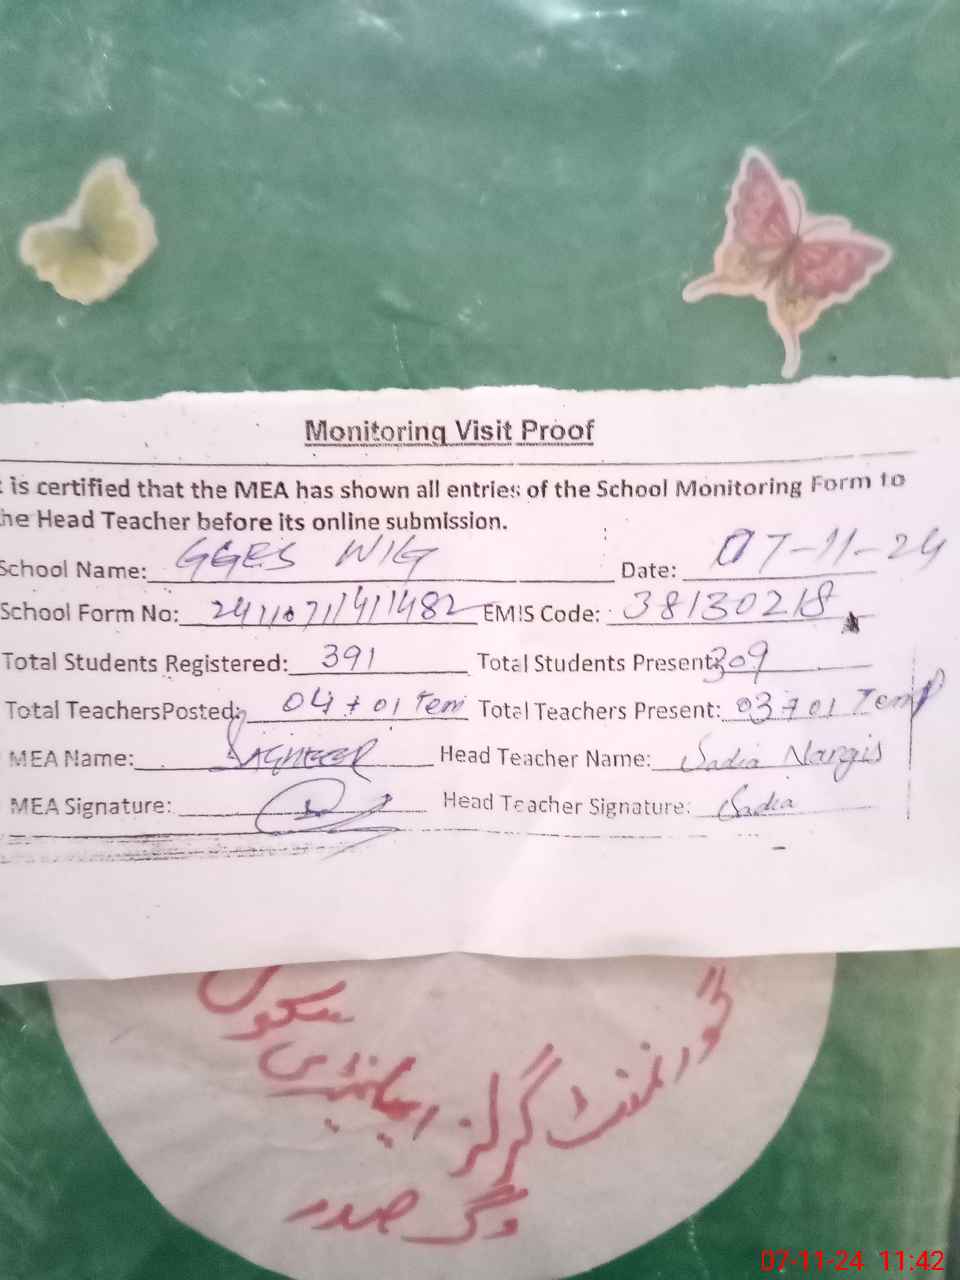 Monitoring Visit Proof
t is certified that the MEA has shown all entries of the School Monitoring Form to
he Head Teacher before its online submission.
School Name: GGES WIG Date: 07-11-24
School Form No: EMIS Code: 38130218
Total Students Registered: 391 Total Students Present: 309
Total TeachersPosted: 04 + 01 Tem Total Teachers Present: 03 + 01 Temp
MEA Name: SAGHEER Head Teacher Name: Sadia Nargis
MEA Signature: Head Teacher Signature: Sadia
گورنمنٹ گرلز ایلیمنٹری سکول
وگ صدر
07-11-24 11:42